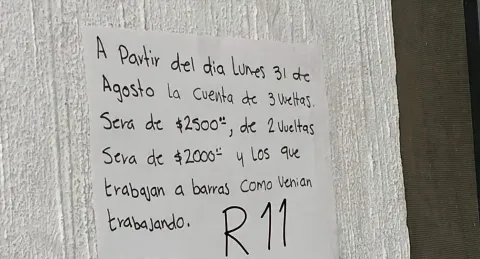 A Partir del dia Lunes 31 de
Agosto la cuenta de 3 vueltas.
Sera de $2500°°, de 2 vueltas
Sera de $2000°° y los que
trabajan a barras como venian
trabajando.
R11